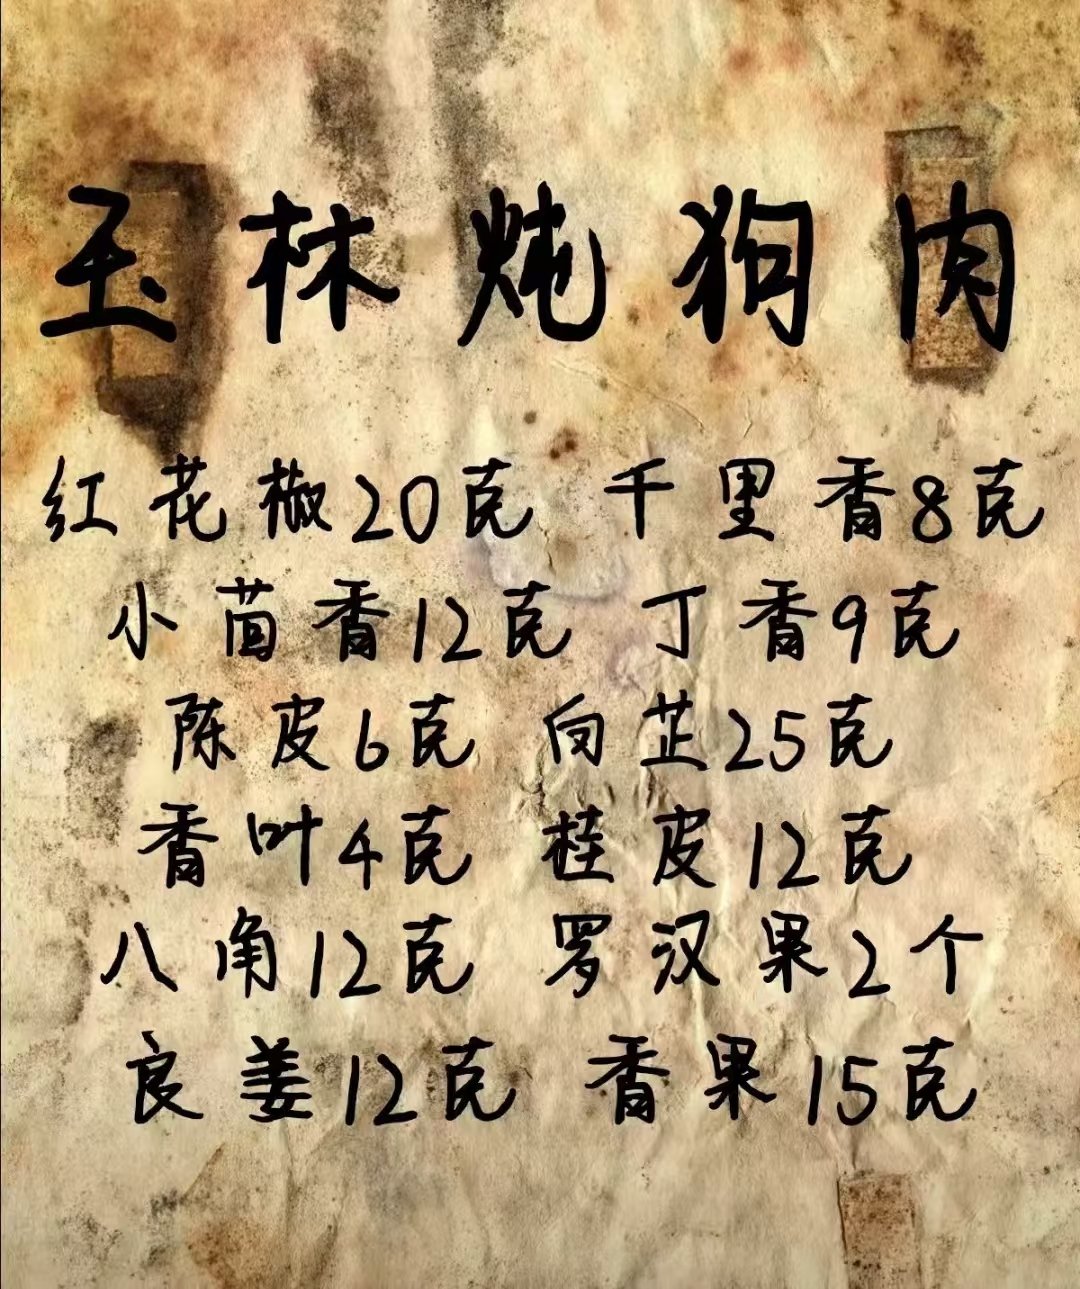 玉林炖狗肉
红花椒20克 千里香8克
小茴香12克 丁香9克
陈皮6克 向芷25克
香叶4克 桂皮12克
八角12克 罗汉果2个
良姜12克 香果15克